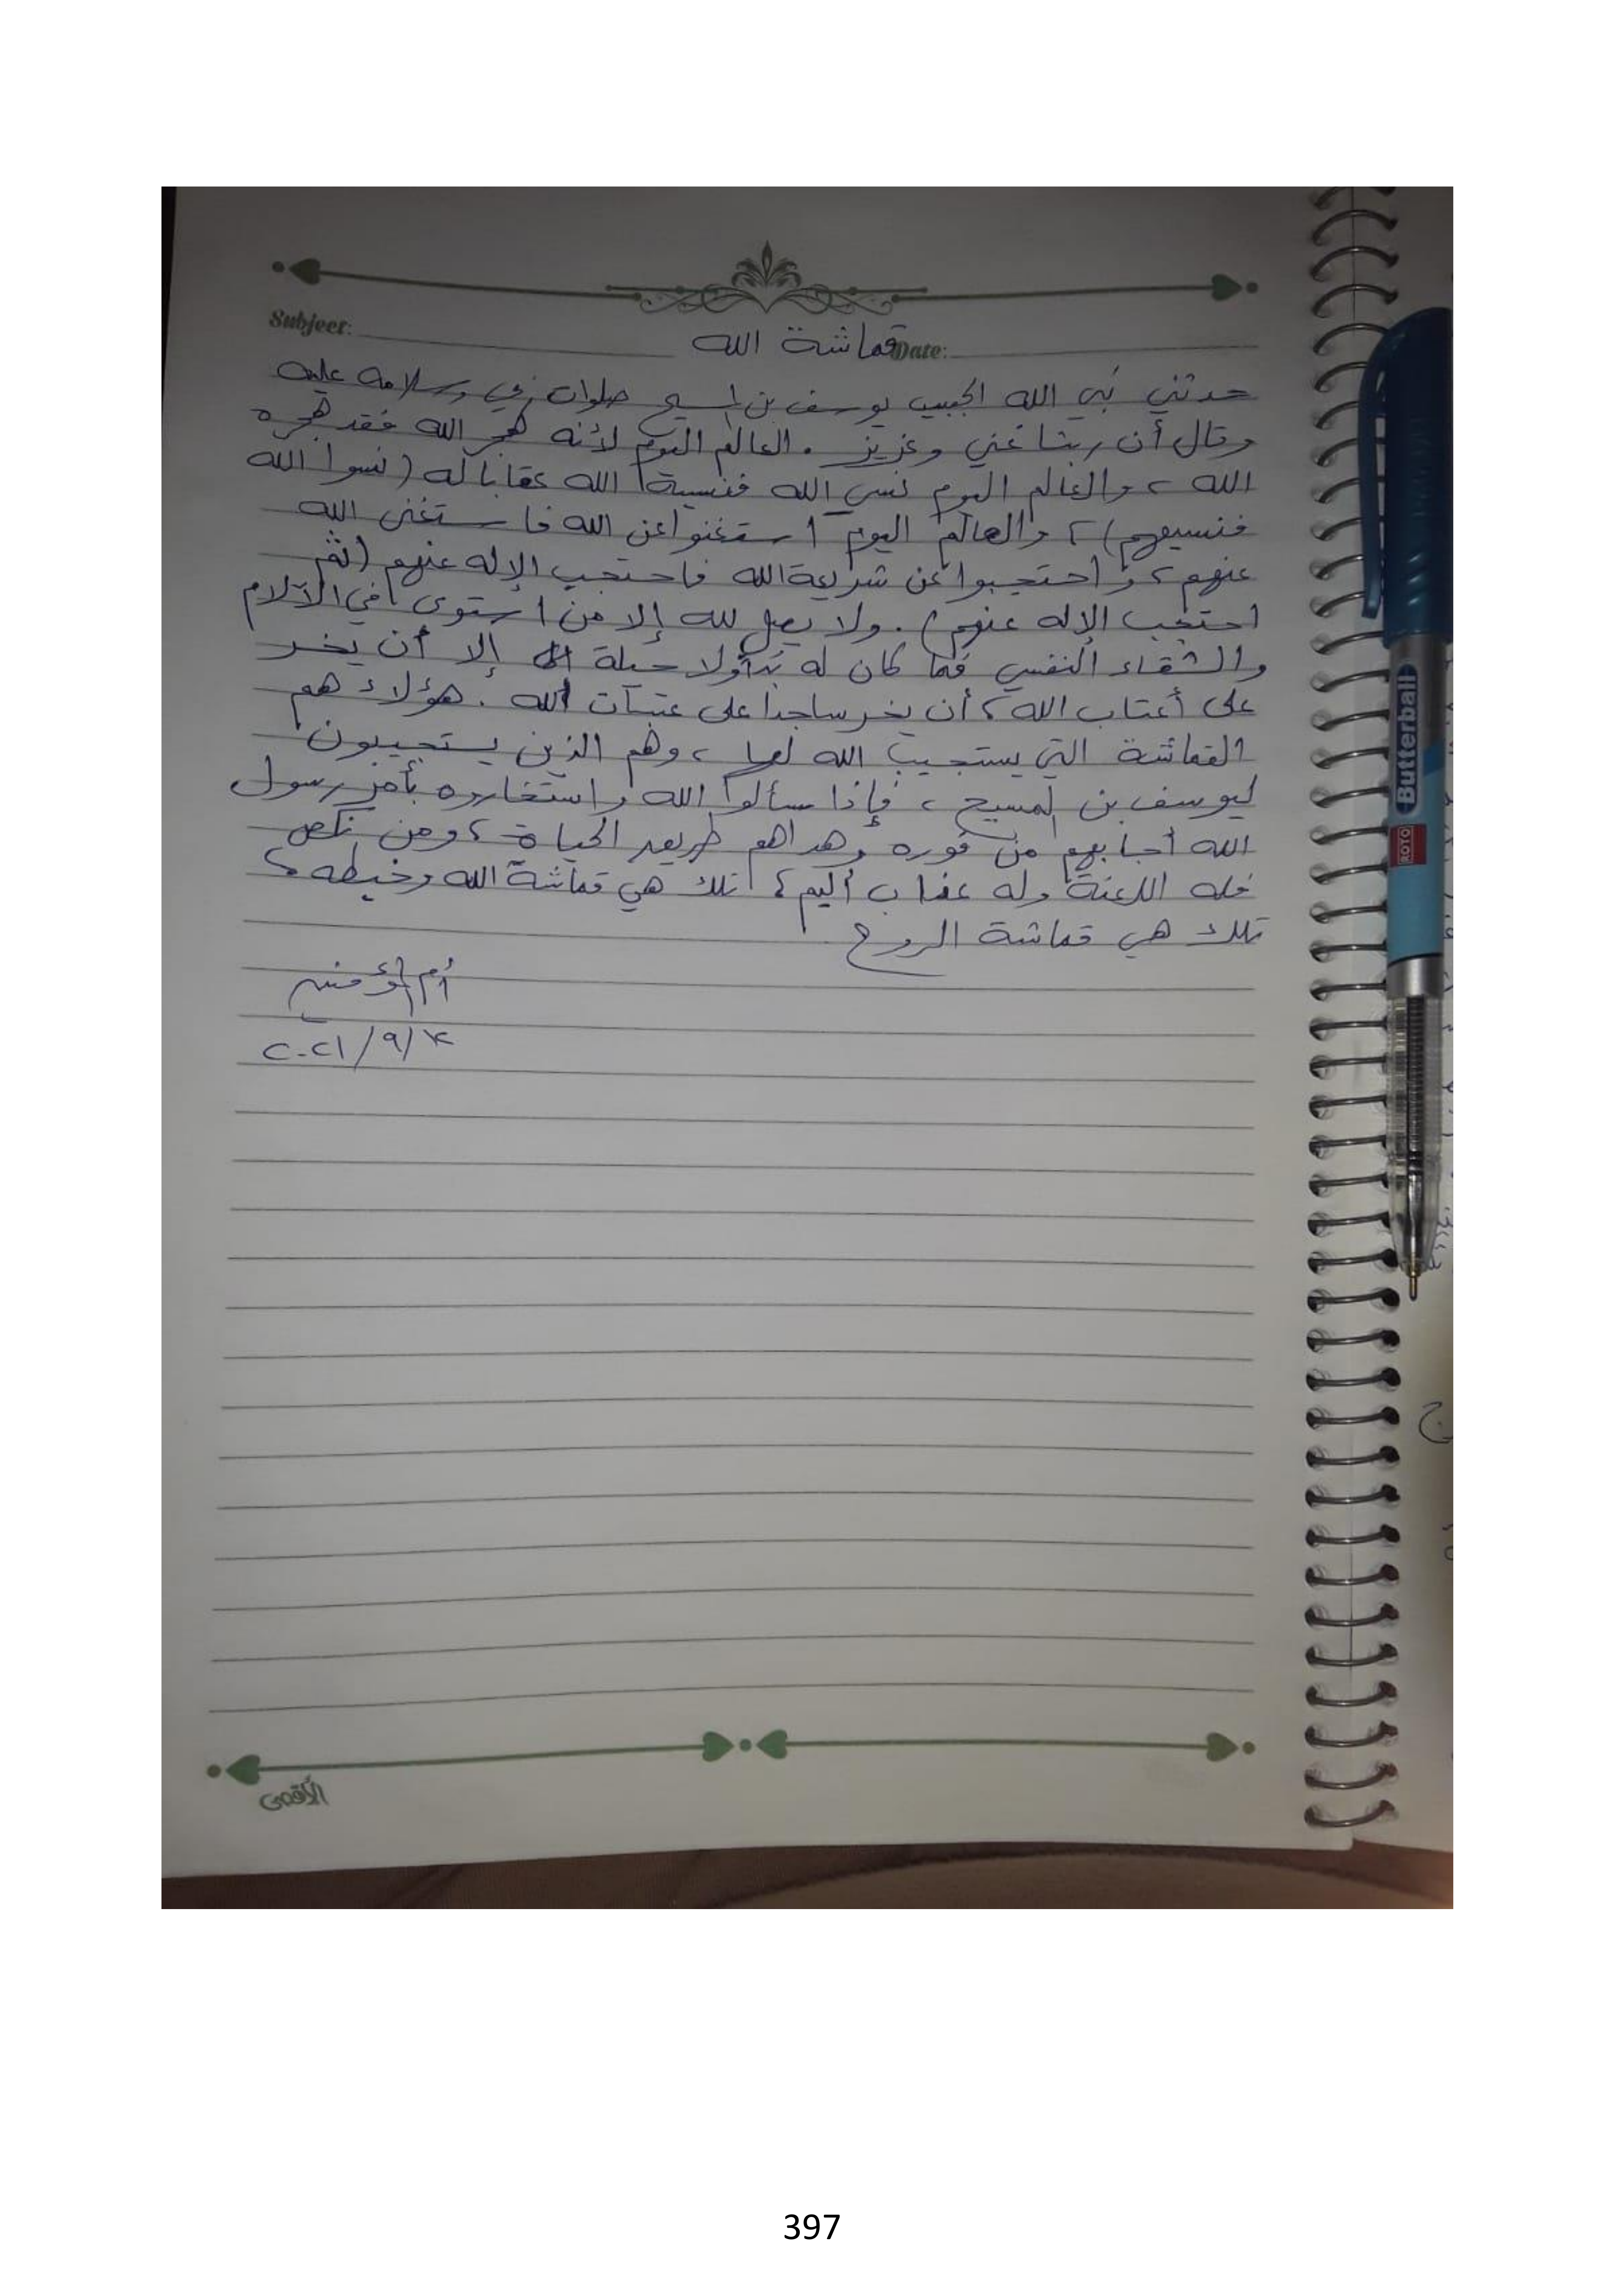 Subject:
Date:
قماشة الله
حدثني نبي الله الحبيب يوسف بن المسيح صلوات ربي وسلامه عليه
وقال أن ربنا غني وعزيز . العالم اليوم لأنه هجر الله فقد هجره
الله ، والعالم اليوم نسي الله فنسيه الله عقابا له (نسوا الله
فنسيهم) ، والعالم اليوم استغنوا عن الله فاستغنى الله
عنهم ، واحتجبوا عن شريعة الله فاحتجب الإله عنهم (ثم
احتجب الإله عنهم) . ولا يصل لله إلا من استوى في الآلام
والشقاء النفسي فما كان له بد ولا حيلة إلا أن يخر
على أعتاب الله ، أن يخر ساجدا على عتبات الله . هؤلاء هم
القماشة التي يستجيب الله لها ، وهم الذين يستجيبون
ليوسف بن المسيح ، فإذا سألوا الله واستخاروه بأمر رسول
الله أجابهم من فوره وهداهم طريق الحياة ، ومن نكص
فله اللعنة وله عذاب أليم ، تلك هي قماشة الله وخيطه ،
تلك هي قماشة الروح
أم المؤمنين
٢٠٢١/٩/٤
الأقصى
Butterball
ROTO
397